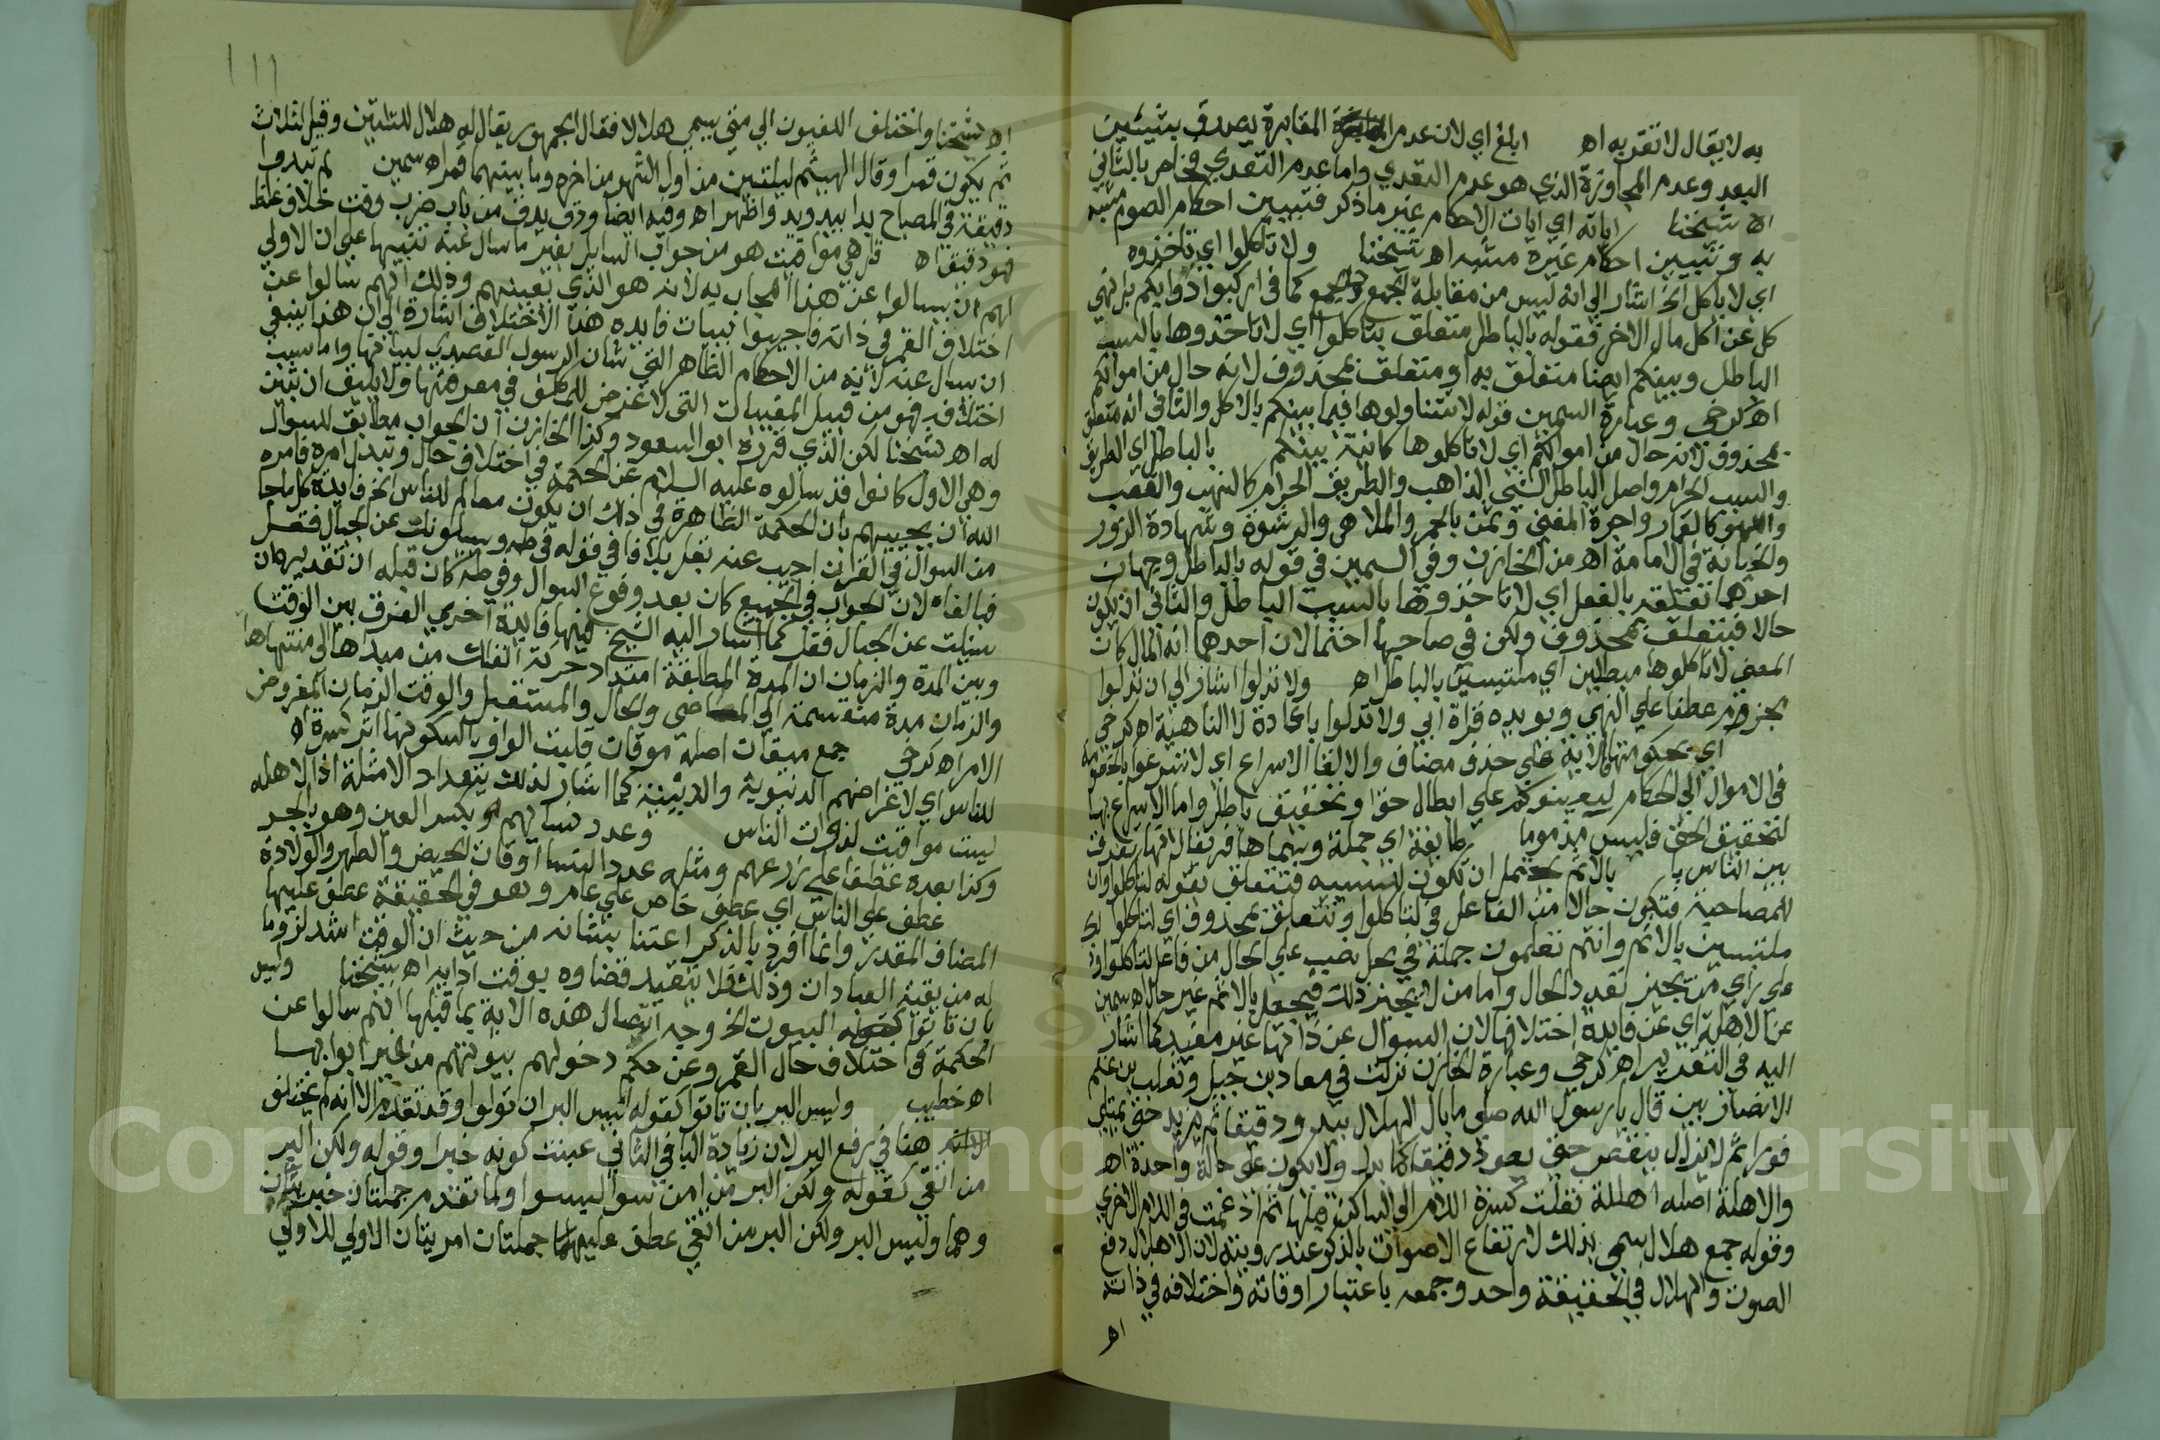 به لا يقال لا تقربه اه ابلغ اي لان عدم المقاربة يصدق بشيئين
البعد وعدم المجاوزة الذي هو عدم التعدي واما عدم التعدي فخاص بالثاني
اه شيخنا اياته اي ايات الاحكام غير ما ذكر فتبيين احكام الصوم مشبه
به وتبيين احكام غيره مشبه اه شيخنا ولا تاكلوا اي تاخذوه
اي لا ياكل الخ اشار الي انه ليس من مقابلة الجمع بالجمع كما في اركبوا دوابكم بل نهي
كل عن اكل مال الاخر فقوله بالباطل متعلق بتاكلوا اي لا تاخذوها بالسبب
الباطل وبينكم ايضا متعلق به او متعلق بمحذوف لانه حال من اموالكم
اه كرخي وعبارة السمين قوله لا تتناولوها فيما بينكم بالاكل والثاني انه متعلق
بمحذوف لانه حال من اموالكم اي لا تاكلوها كائنة بينكم بالباطل اي الطريق
والسبب الحرام واصل الباطل الشيء الذاهب والطريق الحرام كالنهب والغصب
واللهو كالقمار واجرة المغني وثمن بالخمر والملاهي والرشوة وشهادة الزور
والخيانة في الامانة اه من الخازن وفي السمين في قوله بالباطل وجهان
احدهما تعلقه بالفعل اي لا تاخذوها بالسبب الباطل والثاني ان يكون
حالا فيتعلق بمحذوف ولكن في صاحبها احتمالان احدهما انه المال كان
المعني لا تاكلوها مبطلين اي ملتبسين بالباطل اه ولا تدلوا اشار الي ان تدلوا
مجزوم عطفا علي النهي ويويده قراة ابي ولا تدلوا باعادة لا الناهية اه كرخي
اي بحكومتها الاية علي حذف مضاف والالقا الاسراع اي لا تسرعوا بالخصومة
في الاموال الي الحكام ليعينوكم علي ابطال حق او تحقيق باطل واما الاسراع بها
لتحقيق الحق فليس مذموما طايفة اي جملة
بين الناس بالاثم يحتمل ان تكون للسببية فتتعلق بقوله لتاكلوا وان
للمصاحبة فتكون حالا من الفاعل في لتاكلوا وتتعلق بمحذوف اي لتاكلوا
ملتبسين بالاثم وانتم تعلمون جملة في محل نصب علي الحال من فاعل لتاكلوا
علي راي من يجيز تعدد الحال واما من لا يجيز ذلك فيجعل بالاثم غير حال اه سمين
عن الاهلة اي عن فايدة اختلافها لان السوال عن ذاتها غير مفيد كما اشار
اليه في التقدير اه كرخي وعبارة الخازن نزلت في معاذ بن جبل وثعلب بن غنم
الانصاريين قال يا رسول الله صلعم ما بال الهلال يبدو دقيقا ثم يزيد حتي يمتلي
نورا ثم لا يزال ينقص حتي يعود دقيقا كما بدا ولا يكون علي حالة واحدة اه
والاهلة اصله اهللة نقلت كسرة اللام الي الساكن قبلها ثم ادغمت في اللام الاخري
وقوله جمع هلال سمي بذلك لارتفاع الاصوات بالذكر عند رويته لان الاهلال رفع
الصوت والهلال في الحقيقة واحد وجمعه باعتبار اوقاته واختلافه في ذاته
اه
١١١
اه شيخنا واختلف اللغويون الي متي يسمي هلالا فقال الجمهور يقال له هلال لليلتين وقيل لثلاث
ثم يكون قمرا وقال ابو الهيثم لليلتين من اول الشهر من اخره وما بينهما قمر اه سمين لم تبدوا
دقيقة في المصباح بدا يبدو بدوا ظهر اه وفيه ايضا ودق يدق من باب ضرب دقة خلاف غلظ
فهو دقيق اه قل هي مواقيت هو من جواب السايل بغير ما سال عنه تنبيها علي ان الاولي
لهم ان يسالوا عن هذا المجاب به لانه هو الذي يعنيهم وذلك انهم سالوا عن
اختلاف القمر في ذاته فاجيبوا ببيان فايدة هذا الاختلاف اشارة الي ان هذا ينبغي
ان يسال عنه لانه من الاحكام الظاهر التي شان الرسول التصدي لبيانها واما سبب
اختلافه فهو من قبيل المغيبات التي لا غرض للمكلف في معرفتها ولا يليق ان تبين
له اه شيخنا لكن الذي قرره ابو السعود وكذا الخازن ان الجواب مطابق للسوال
وهي الاول كانوا قد سالوه عليه السلام عن الحكمة في اختلاف حال وتبدل امره فامره
الله ان يجيبهم بان الحكمة الظاهرة في ذلك ان يكون معالم للناس الخ فايدة كل ما جا
من السوال في القران اجيب عنه بقل بلا فا في قوله في طه ويسالونك عن الجبال فقل
فبالفاء لان الجواب في الجميع كان بعد وقوع السوال وفي طه كان قبله ان تقديره ان
سئلت عن الجبال فقل كما اشار اليه الشيخ منها فايدة اخري الفرق بين الوقت
وبين المدة والزمان ان المدة المطلقة امتداد حركة الفلك من مبداها الي منتهاها
والزمان مدة منقسمة الي الماضي والحال والمستقبل والوقت الزمان المفروض
الامر اه كرخي جمع ميقات اصله موقات قلبت الواو يا لسكونها اثر كسرة اه
للناس اي لاغراضهم الدنيوية والدينية كما اشار لذلك بتعداد الامثلة اذ الاهلة
ليست مواقيت لذوات الناس وعدد نسائهم هو بكسر العين وهو بالجر
وكذا بعده عطفا علي زرعهم ومثله عدد النسا اوقات الحيض والطهر والولادة
عطف علي الناس اي عطف خاص علي عام وهو في الحقيقة عطف عليها
المضاف المقدر وانما افرد بالذكر اعتنا بشانه من حيث ان الوقت اشد لزوما
له من بقية العبادات وذلك فلا يتقيد قضاوه بوقت ادايه اه شيخنا وليس
بان تاتوا البيوت الخ وجه اتصال هذه الاية بما قبلها انهم سالوا عن
الحكمة في اختلاف حال القمر وعن حكم دخولهم بيوتهم من غير ابوابها
اه خطيب وليس البر بان تاتوا كقوله ليس البر ان تولوا وقد تقدم الا انه لم يختلف
هنا في رفع البر لان زيادة البا في الثاني عينت كونه خبرا وقوله ولكن البر
من اتقي كقوله ولكن البر من امن سوا بسوا ولما تقدم جملتان خبريتان
وهما وليس البر ولكن البر من اتقي عطف عليهما جملتان امريتان الاولي للاولي
Copyright © King Saud University